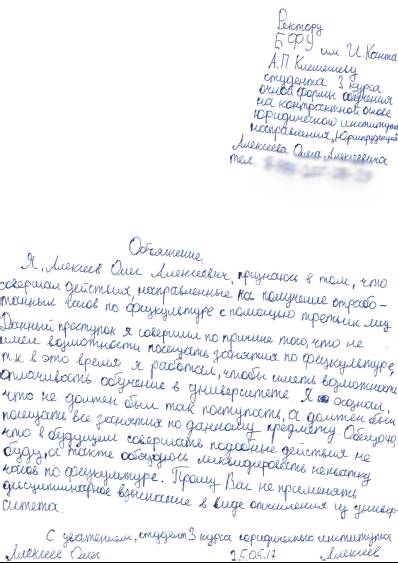 Ректору
БФУ им. И. Канта
А.П. Клемешеву
студента 3 курса
очной формы обучения
на контрактной основе
юридического института
направления „Юриспруденция
Алексеева Олега Алексеевича
тел.
Объяснение.
Я, Алексеев Олег Алексеевич, признаюсь в том, что
совершал действия, направленные на получение отрабо-
танных часов по физкультуре с помощью третьих лиц
Данный проступок я совершил по причине того, что не
имел возможности посещать занятия по физкультуре,
т.к в это время я работал, чтобы иметь возможность
оплачивать обучение в университете. Я осознал,
что не должен был так поступать, а должен был
посещать все занятия по данному предмету. Обещаю,
что в будущем совершать подобные действия не
буду, а также обязуюсь ликвидировать нехватку
часов по физкультуре. Прошу Вас не применять
дисциплинарное взыскание в виде отчисления из универ-
ситета.
С уважением, студент 3 курса юридического института
Алексеев Олег 25.05.17 Алексеев